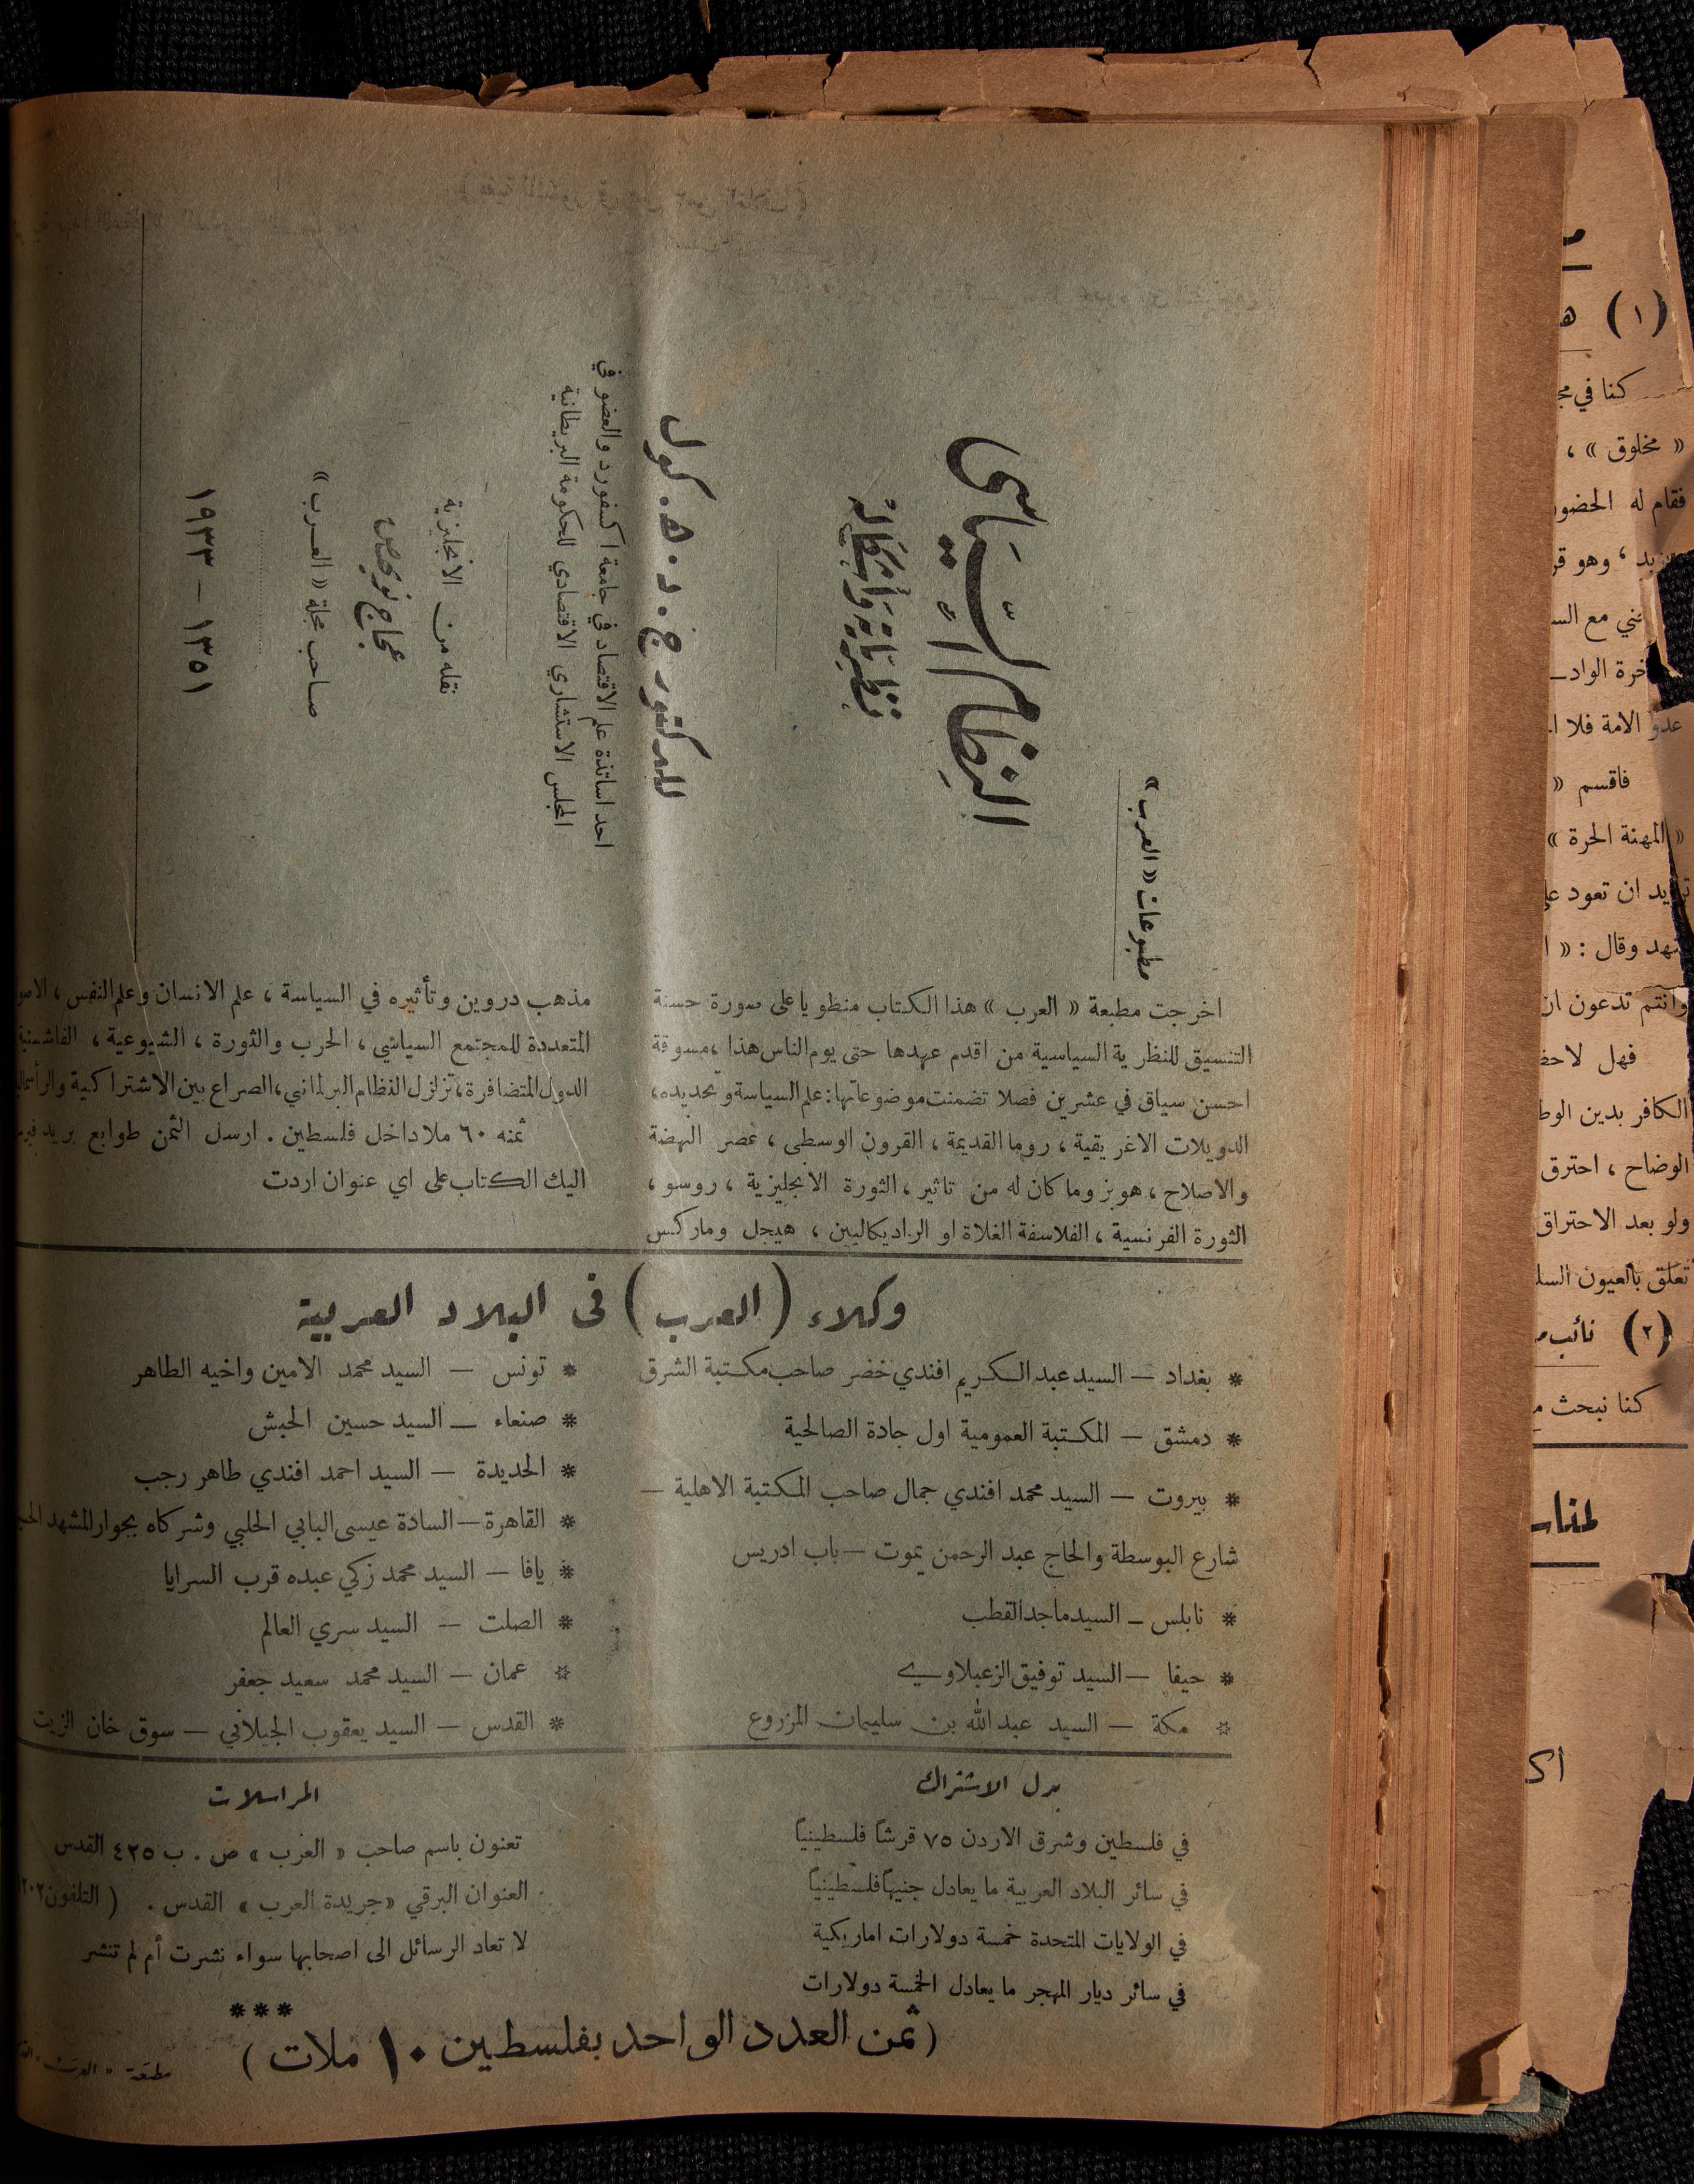 مطبوعات « العرب »
النِظام السِّيَاسي
نظريّاته وأشكاله
للدكتور ج. د. ه. كول
احد اساتذة علم الاقتصاد في جامعة اكسفورد والعضو في
المجلس الاستشاري الاقتصادي للحكومة البريطانية
نقله من الانجليزية
عجاج نويهض
صاحب مجلة « العرب »
١٣٥١ – ١٩٣٣
اخرجت مطبعة « العرب » هذا الكتاب منطويا على صورة حسنة
التنسيق للنظرية السياسية من اقدم عهدها حتى يوم الناس هذا ، مسوقة
احسن سياق في عشرين فصلا تضمنت موضوعاتها : علم السياسة وتحديده ،
الدويلات الاغريقية ، روما القديمة ، القرون الوسطى ، عصر النهضة
والاصلاح ، هوبز وما كان له من تاثير ، الثورة الانجليزية ، روسو ،
الثورة الفرنسية ، الفلاسفة الغلاة او الراديكاليين ، هيجل وماركس
مذهب دروين وتأثيره في السياسة ، علم الانسان وعلم النفس ،
المتعددة للمجتمع السياسي ، الحرب والثورة ، الشيوعية ، الفاشستية
الدول المتضافرة ، تزلزل النظام البرلماني ، الصراع بين الاشتراكية
ثمنه ٦٠ ملا داخل فلسطين . ارسل الثمن طوابع بريد
اليك الكتاب على اي عنوان اردت
وكلاء ( العرب ) فى البلاد العربية
* بغداد – السيد عبد الكريم افندي خضر صاحب مكتبة الشرق
* دمشق – المكتبة العمومية اول جادة الصالحية
* بيروت – السيد محمد افندي جمال صاحب المكتبة الاهلية –
شارع البوسطة والحاج عبد الرحمن يموت – باب ادريس
* نابلس – السيد ماجد القطب
* حيفا – السيد توفيق الزعبلاوي
* مكة – السيد عبد الله بن سليمان المزروع
* تونس – السيد محمد الامين واخيه الطاهر
* صنعاء – السيد حسين الحبش
* الحديدة – السيد احمد افندي طاهر رجب
* القاهرة – السادة عيسى البابي الحلبي وشركاه بجوار المشهد
* يافا – السيد محمد زكي عبده قرب السرايا
* الصلت – السيد سري العالم
* عمان – السيد محمد سعيد جعفر
* القدس – السيد يعقوب الجيلاني – سوق خان الزيت
بدل الاشتراك
في فلسطين وشرق الاردن ٧٥ قرشاً فلسطينياً
في سائر البلاد العربية ما يعادل جنيهاً فلسطينياً
في الولايات المتحدة خمسة دولارات اماريكية
في سائر ديار المهجر ما يعادل الخمسة دولارات
المراسلات
تعنون باسم صاحب « العرب » ص . ب ٤٢٥ القدس
العنوان البرقي « جريدة العرب » القدس . ( التلفون
لا تعاد الرسائل الى اصحابها سواء نشرت أم لم تنشر
***
( ثمن العدد الواحد بفلسطين ١٠ ملات )
مطبعة « العرب »
( ١ )
كنا في
« مخلوق » ،
فقام له الحضور
وهو
مع
عدو الامة فلا
فاقسم «
« المهنة الحرة »
ان تعود
وقال : «
وانتم تدعون ان
فهل
الكافر بدين
الوضاح ، احترق
ولو بعد الاحتراق
تعلق بالعيون
( ٢ ) نائب
كنا نبحث